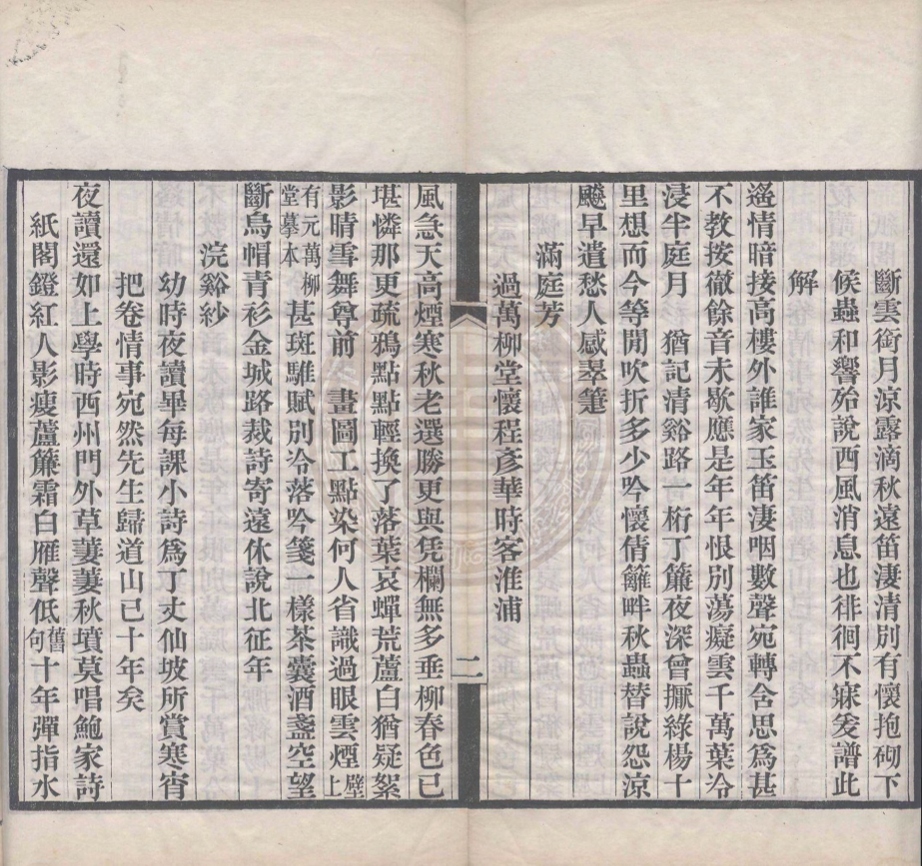 斷雲銜月涼露滴秋遠笛淒清別有懷抱砌下
候蟲和響殆說西風消息也徘徊不寐爰譜此
解
遙情暗接高樓外誰家玉笛淒咽數聲宛轉舍思爲甚
不教按徹餘音未歇應是年年恨別蕩癡雲千萬葉冷
浸半庭月 猶記清谿路一桁丁簾夜深曾擫綠楊十
里想而今等閒吹折多少吟懷倩籬畔秋蟲替說怨涼
飈早遣愁人感翠篴
滿庭芳
過萬柳堂懷程彥華時客淮浦
二
風急天高煙寒秋老選勝更與凭欄無多垂柳春色已
堪憐那更疏鴉點點輕換了落葉哀蟬荒蘆白猶疑絮
影晴雪舞尊前 畫圖工點染何人省識過眼雲煙壁上
有元萬柳堂摹本甚斑騅賦別冷落吟箋一樣茶囊酒盞空望
斷烏帽青衫金城路裁詩寄遠休說北征年
浣谿紗
幼時夜讀畢每課小詩爲丁丈仙坡所賞寒宵
把卷情事宛然先生歸道山已十年矣
夜讀還如上學時西州門外草萋萋秋墳莫唱鮑家詩
紙閣鐙紅人影瘦蘆簾霜白雁聲低舊句十年彈指水